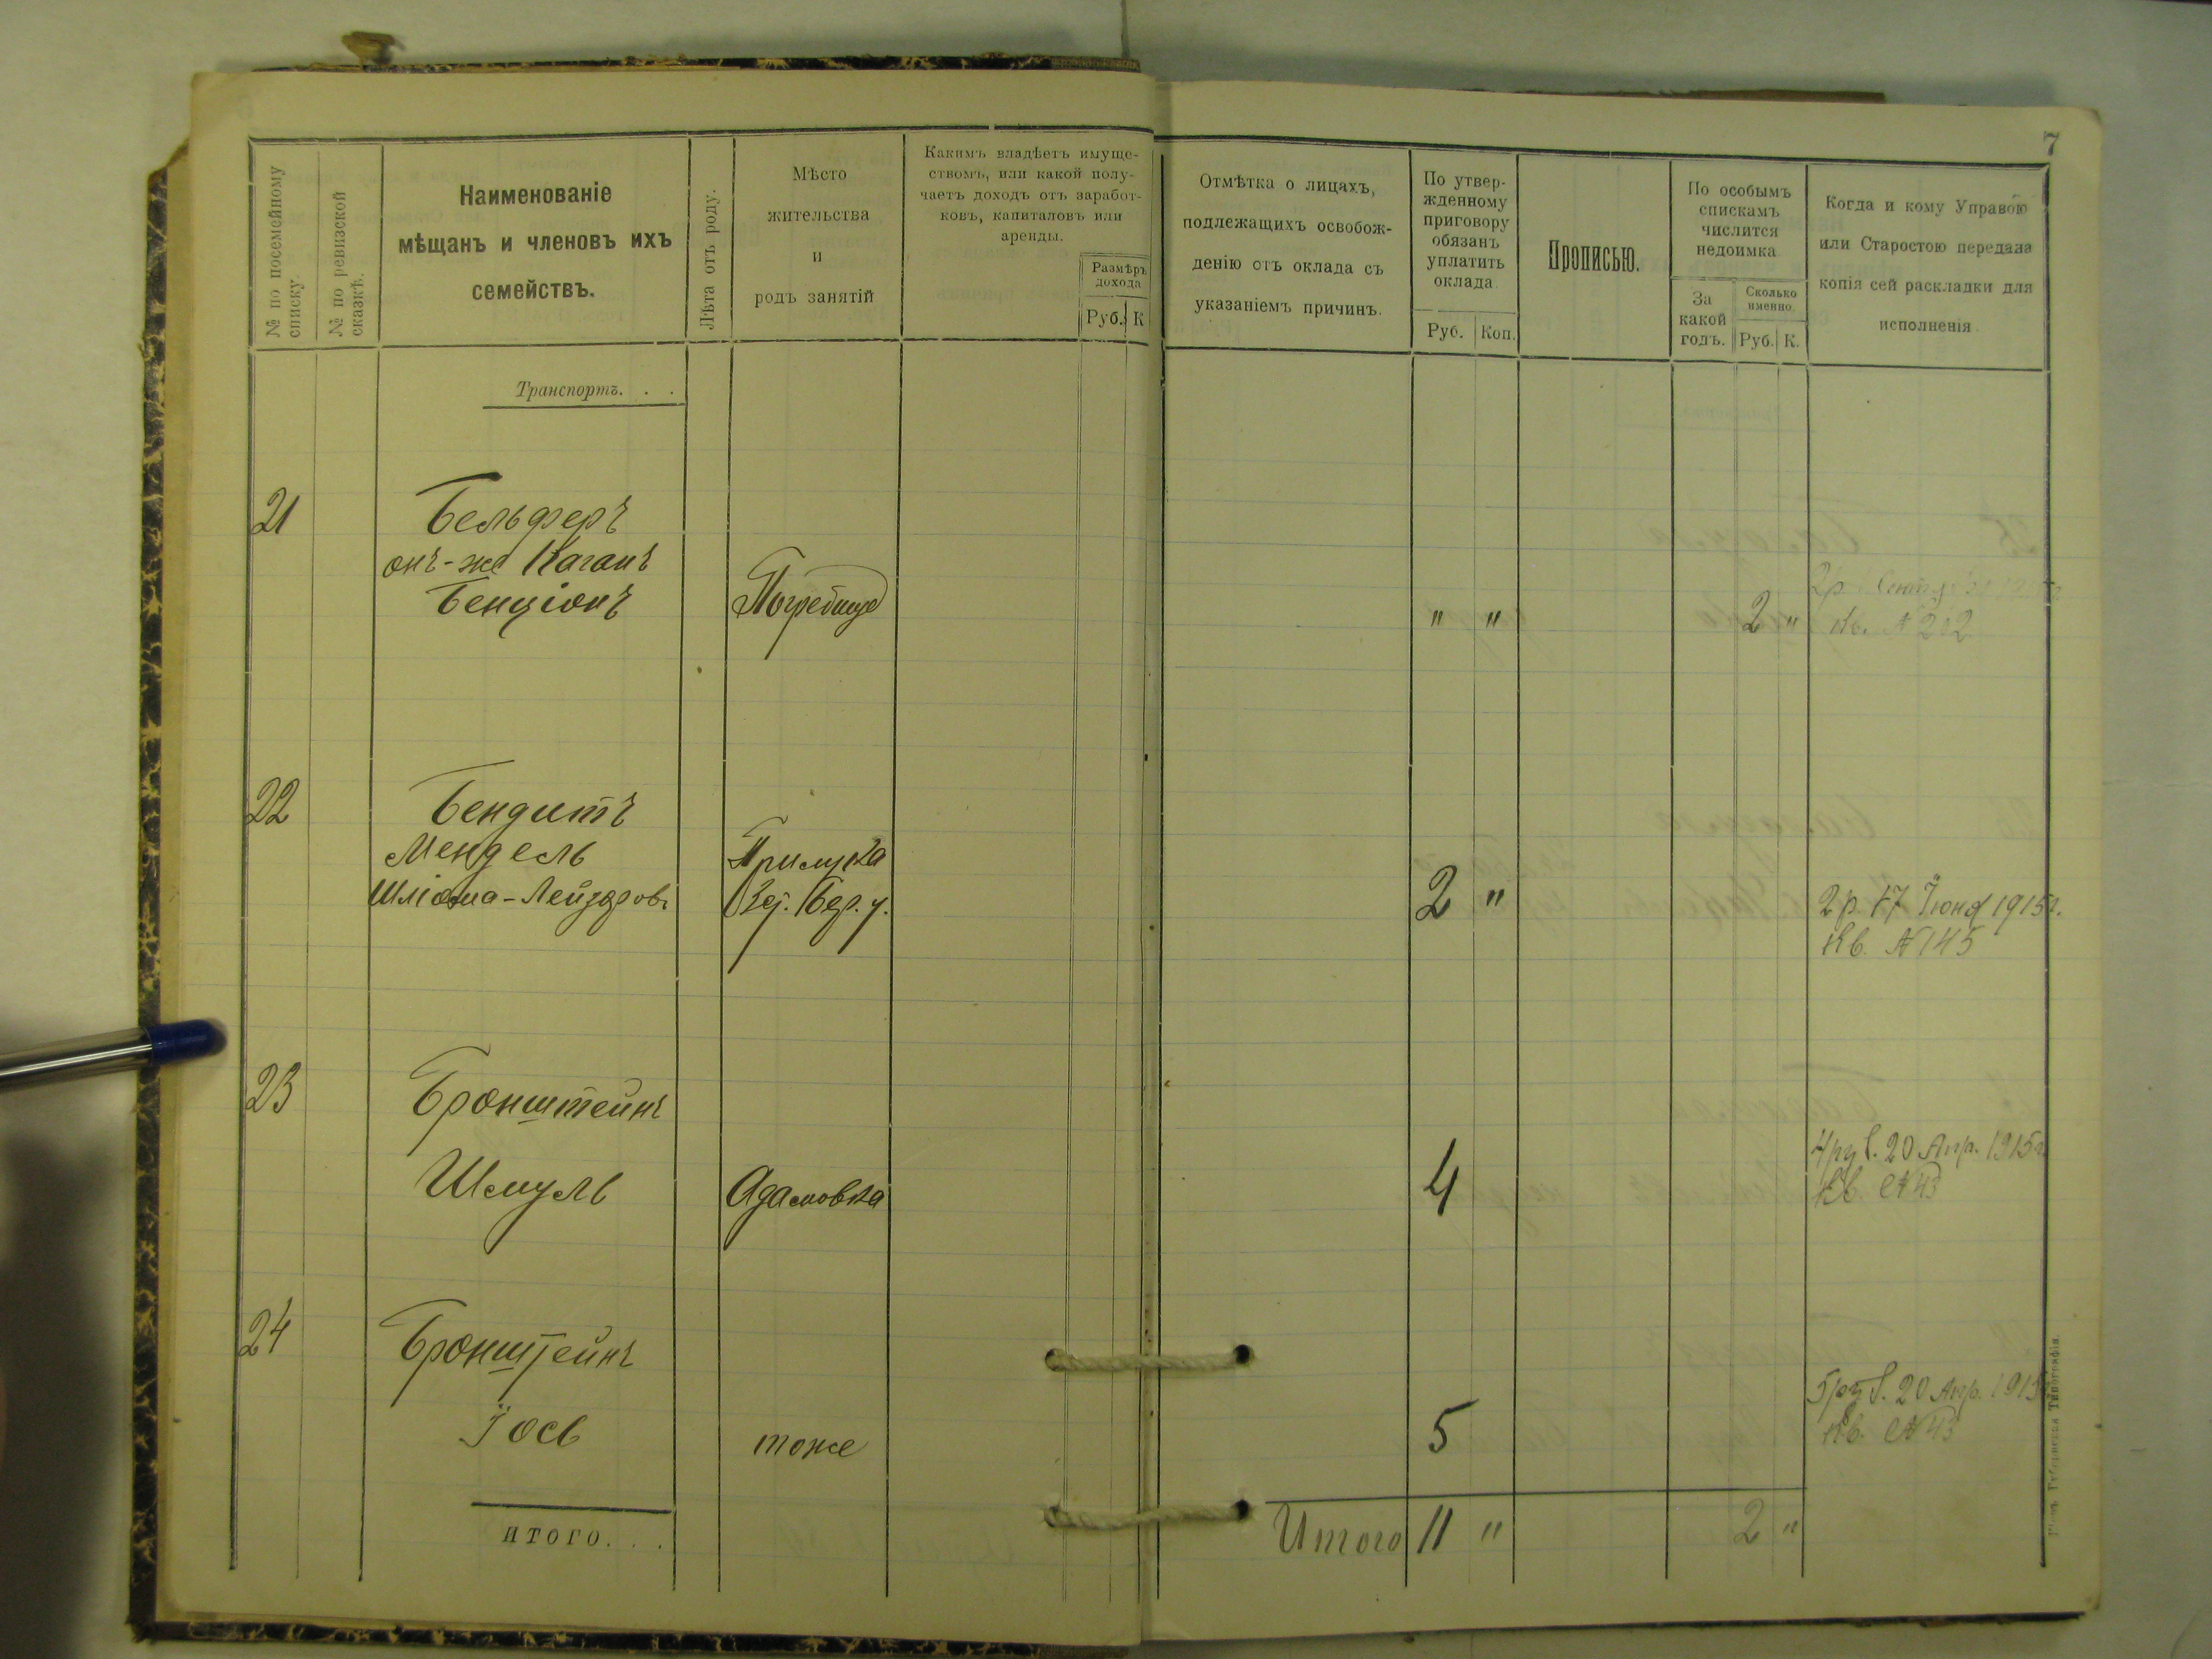 7
№ по посемейному
списку.
№ по ревизской
сказкѣ.
Наименованіе
мѣщанъ и членовъ ихъ
семействъ.
Лѣта отъ роду.
Мѣсто
жительства
и
родъ занятій
Какимъ владѣетъ имуще-
ствомъ, или какой полу-
чаетъ доходъ отъ заработ-
ковъ, капиталовъ или
аренды.
Размѣръ
дохода
Руб. К
Отмѣтка о лицахъ,
подлежащихъ освобож-
денію отъ оклада съ
указаніемъ причинъ.
По утвер-
жденному
приговору
обязанъ
уплатить
оклада.
Руб. Коп.
Прописью.
По особымъ
спискамъ
числится
недоимка
За
какой
годъ.
Сколько
именно.
Руб. К.
Когда и кому Управою
или Старостою передана
копія сей раскладки для
исполненія.
Транспортъ. . .
21 Бельферъ
онъ-же Каганъ
Бенціонъ Погребище " " 2 "
2р.
Кв. № 202
22 Бендитъ
Мендель
Шліома-Лейзеров. 2 "
Бер. у.
2 р. 17 Іюня 1915г.
Кв. № 145
23 Бронштейнъ
Шмуль Адамовка 4
4 руб. 20 Апр. 1915г.
Кв. № 43
24 Бронштейнъ
Іось тоже 5
5 руб. 20 Апр. 1915
Кв. № 43
ИТОГО. . .
Итого 11 " 2 "
Губернская Типографія.